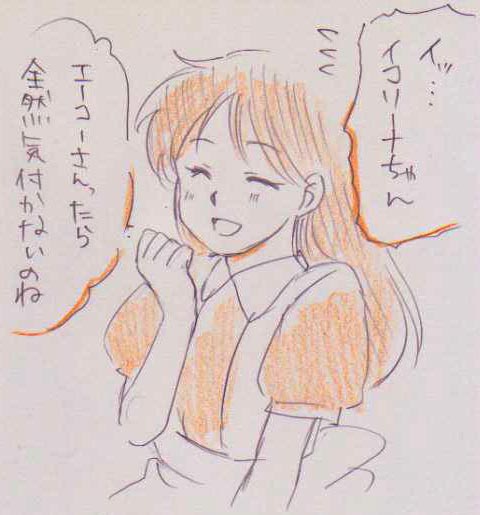 イッ…
イコリーナちゃん
エーコーさんったら
全然気付かないのね